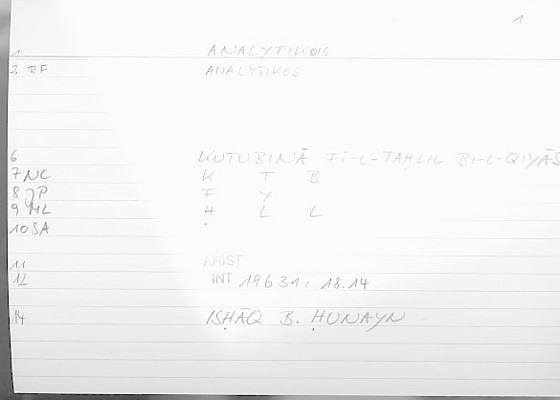 1
1 ANALYTIKOIS
2 RF ANALYTIKOS
6 KUTUBINĀ FĪ-L-TAḤLIL BI-L-QIYĀS
7 NC K T B
8 JP F Y
9 ML Ḥ L L
10 SA
11 ARIST
12 INT 19631, 18.14
14 ISḤĀQ B. ḤUNAYN